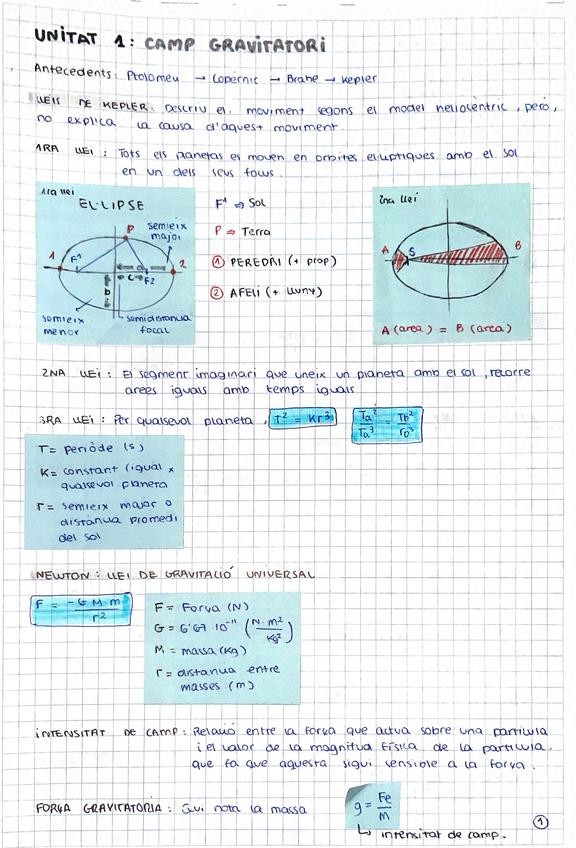 UNITAT 1: CAMP GRAVITATORI
Antecedents: Ptolomeu → Copèrnic → Brahe → Kepler
LLEIS DE KEPLER: Descriu el moviment segons el model heliocèntric, però,
no explica la causa d'aquest moviment.
1RA LLEI: Tots els planetas es mouen en orbites el·líptiques amb el sol
en un dels seus focus.
1ra llei
EL·LIPSE
semieix
major
P
1
F¹
a
c
F2
2
b
semieix
menor
semidistancia
focal
F¹ ⇒ Sol
P ⇒ Terra
① PEREDRI (+ prop)
② AFELI (+ lluny)
2na llei
A
S
B
A (area) = B (area)
2NA LLEI: El segment imaginari que uneix un planeta amb el sol, recorre
arees iguals amb temps iguals
3RA LLEI: Per qualsevol planeta, T² = Kr³
Ta²/Ta³ = Tb²/rb³
T = període (s)
K = constant (igual x
qualsevol planeta
r = semieix major o
distància promedi
del sol
NEWTON: LLEI DE GRAVITACIÓ UNIVERSAL
F = -G M·m/r²
F = Força (N)
G = 6'67·10⁻¹¹ (N·m²/Kg²)
M = massa (Kg)
r = distancia entre
masses (m)
INTENSITAT DE CAMP: Relació entre la força que actua sobre una partícula
i el valor de la magnitud física de la partícula.
que fa que aquesta sigui sensible a la força.
FORÇA GRAVITATORIA: Qui nota la massa
g = Fe/M
↳ intensitat de camp.
①